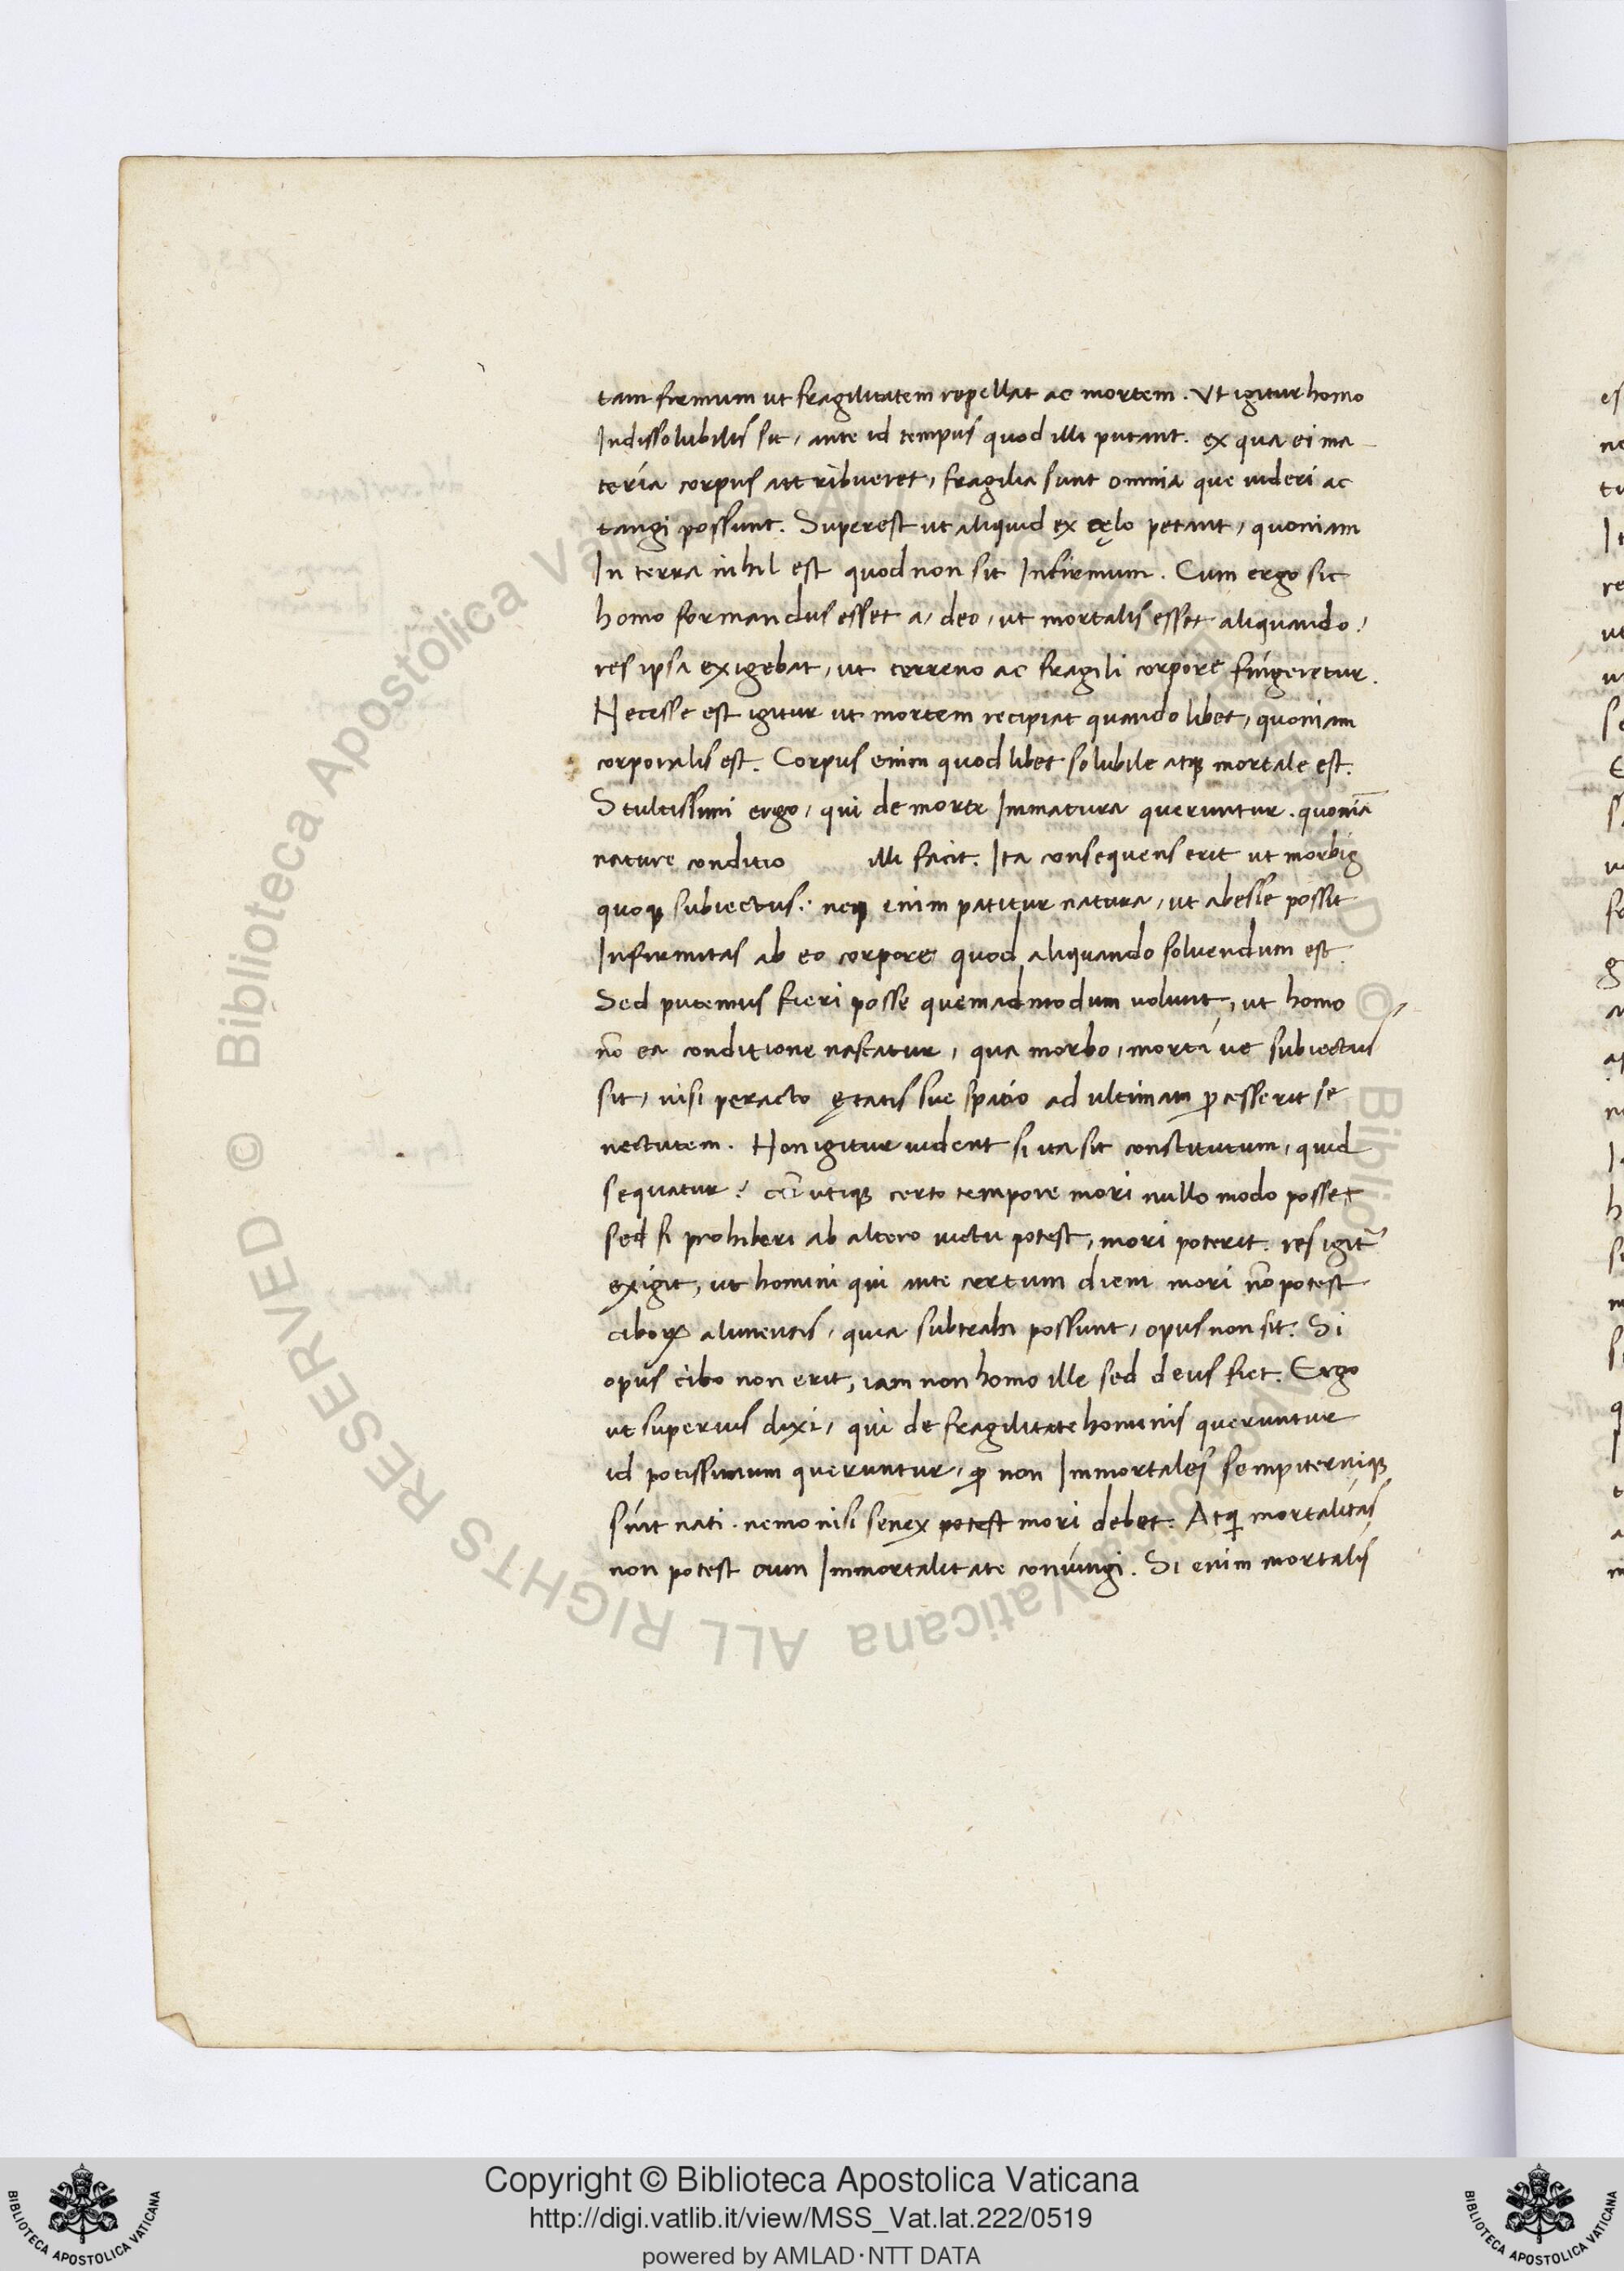 tam firmum ut fragilitatem repellat ac mortem. Vt igitur homo
Indissolubilis sit, ante id tempus quod illi putant. ex qua ei ma
teria corpus attribueret, fragilia sunt omnia que uideri ac
tangi possunt. Superest ut aliquid ex cęlo petant, quoniam
In terra nihil est quod non sit Infirmum. Cum ergo sic
homo formandus esset a, deo, ut mortalis esset aliquando:
res ipsa exigebat, ut terreno ac fragili corpore fingeretur.
Necesse est igitur ut mortem recipiat quando libet, quoniam
corporalis est. Corpus enim quodlibet solubile atqꝫ mortale est.
Stultissimi ergo, qui de morte Immatura queruntur. quoniã
nature conditio illi facit. Ita consequens erit ut morbis
quoqꝫ subiectus: neqꝫ enim patitur natura, ut abesse possit
Infirmitas ab eo corpore quod aliquando soluendum est.
Sed putemus fieri posse quemadmodum uolunt, ut homo
nõ ea conditione nascatur, qua morbo, morti ue subiectus
sit, nisi peracto ętatis sue spatio ad ultimam ꝓcesserit se
nectutem. Non igitur uident si ita sit constitutum, quid
sequatur: oĩ utiqꝫ certo tempore mori nullo modo posset
sed si prohiberi ab altero uictu potest, mori poterit. res igit̃
exigit, ut homini qui ante certum diem mori nõ potest
ciboꝝ alimentis, quia subtrahi possunt, opus non sit. Si
opus cibo non erit, iam non homo ille sed deus fiet. Ergo
ut superius dixi, qui de fragilitate hominis queruntur
id potissimum queruntur, ꝙ non Immortales sempiterniqꝫ
sint nati. nemo nisi senex potest mori debet. Atqꝫ mortalitas
non potest cum Immortalitate coniungi. Si enim mortalis
Copyright © Biblioteca Apostolica Vaticana
http://digi.vatlib.it/view/MSS_Vat.lat.222/0519
powered by AMLAD·NTT DATA
BIBLIOTECA APOSTOLICA VATICANA
BIBLIOTECA APOSTOLICA VATICANA
© Biblioteca Apostolica Vaticana ALL RIGHTS RESERVED